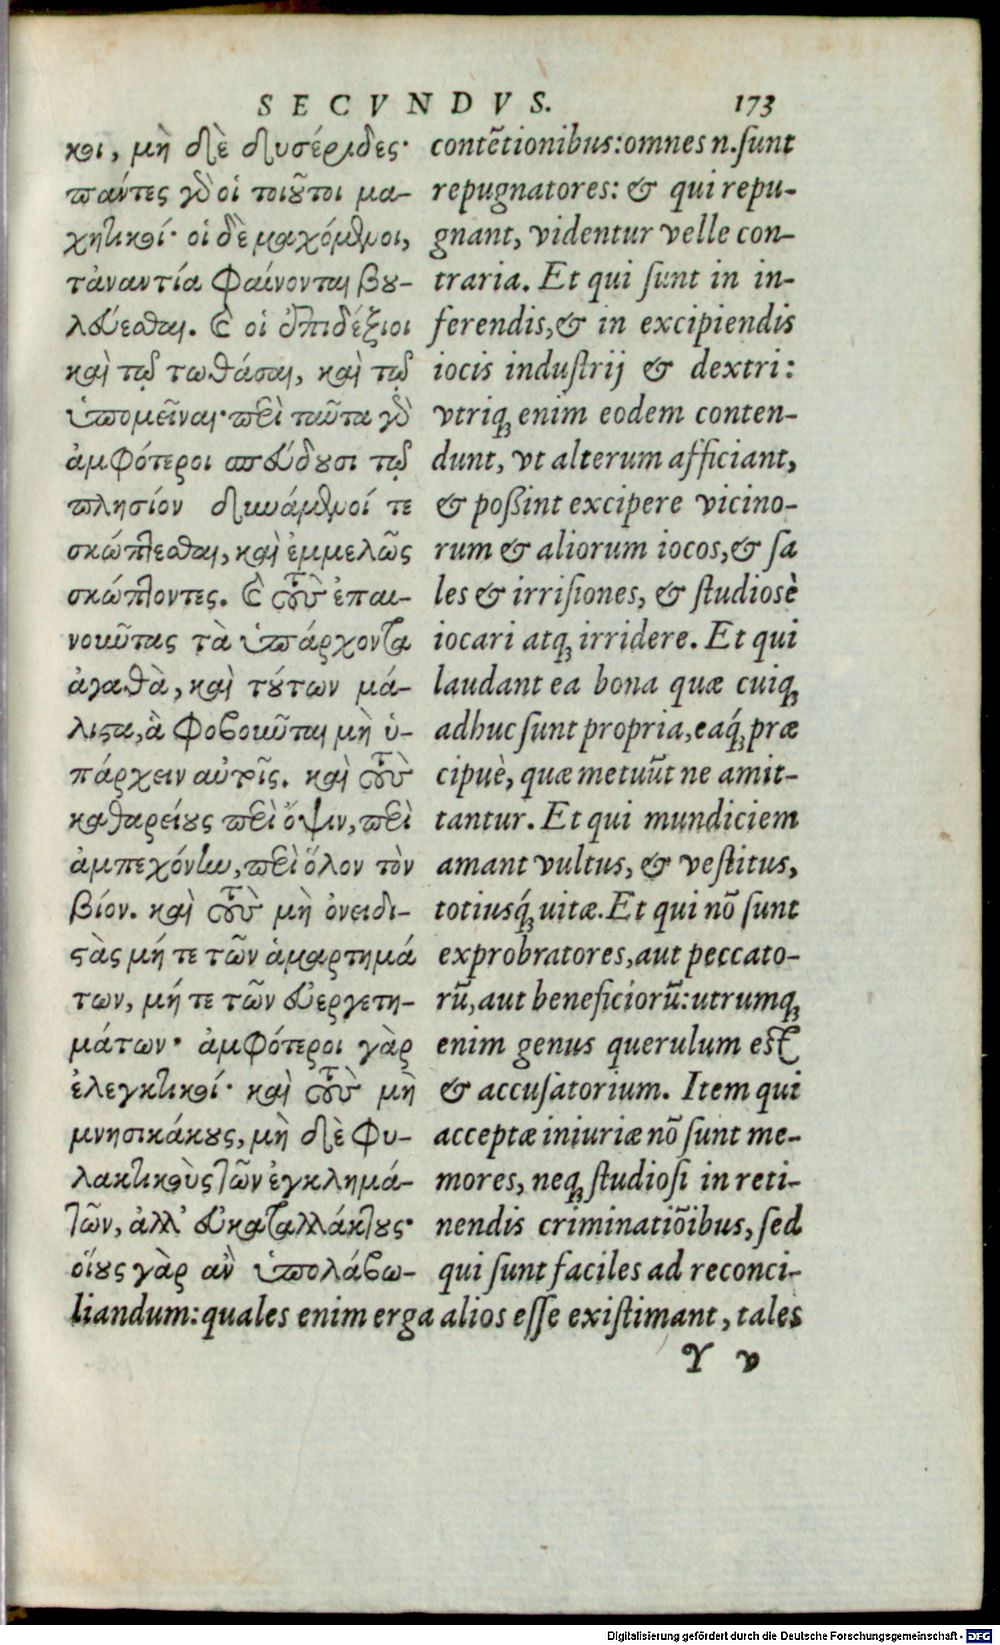 SECVNDVS. 173
κοι, μὴ δὲ δυσέριδες·
πάντες γὸ οἱ τοιοῦτοι μα-
χητικοί· οἱ δὲ μαχόμενοι,
τἀναντία φαίνονται βού-
λεσθαι. καὶ οἱ ἐπιδέξιοι
καὶ τῷ τωθάσαι, καὶ τῷ
ὑπομεῖναι· περὶ ταῦτα γὸ
ἀμφότεροι σπεύδουσι τῷ
πλησίον δυνάμενοί τε
σκώπτεσθαι, καὶ ἐμμελῶς
σκώπτοντες. καὶ τοὺς ἐπαι-
νοῦντας τὰ ὑπάρχοντα
ἀγαθὰ, καὶ τούτων μά-
λιστα, ἃ φοβοῦνται μὴ ὑ-
πάρχειν αὐτοῖς. καὶ τοὺς
καθαρείους περὶ ὄψιν, περὶ
ἀμπεχόνην, περὶ ὅλον τὸν
βίον. καὶ τοὺς μὴ ὀνειδι-
στὰς μή τε τῶν ἁμαρτημά
των, μή τε τῶν εὐεργετη-
μάτων· ἀμφότεροι γὰρ
ἐλεγκτικοί· καὶ τοὺς μὴ
μνησικάκους, μὴ δὲ φυ-
λακτικοὺς τῶν ἐγκλημά-
των, ἀλλ' εὐκαταλλάκτους·
οἵους γὰρ ἂν ὑπολάβω-
contẽtionibus: omnes n. sunt
repugnatores: & qui repu-
gnant, videntur velle con-
traria. Et qui sunt in in-
ferendis, & in excipiendis
iocis industrij & dextri:
vtriq; enim eodem conten-
dunt, vt alterum afficiant,
& poßint excipere vicino-
rum & aliorum iocos, & sa
les & irrisiones, & studiosè
iocari atq; irridere. Et qui
laudant ea bona quæ cuiq;
adhuc sunt propria, eaq́; præ
cipuè, quæ metuũt ne amit-
tantur. Et qui mundiciem
amant vultus, & vestitus,
totiusq́; uitæ. Et qui nõ sunt
exprobratores, aut peccato-
rũ, aut beneficiorũ: utrumq;
enim genus querulum est
& accusatorium. Item qui
acceptæ iniuriæ nõ sunt me-
mores, neq; studiosi in reti-
nendis criminatiõibus, sed
qui sunt faciles ad reconci-
liandum: quales enim erga alios esse existimant, tales
Y v
Digitalisierung gefördert durch die Deutsche Forschungsgemeinschaft - DFG